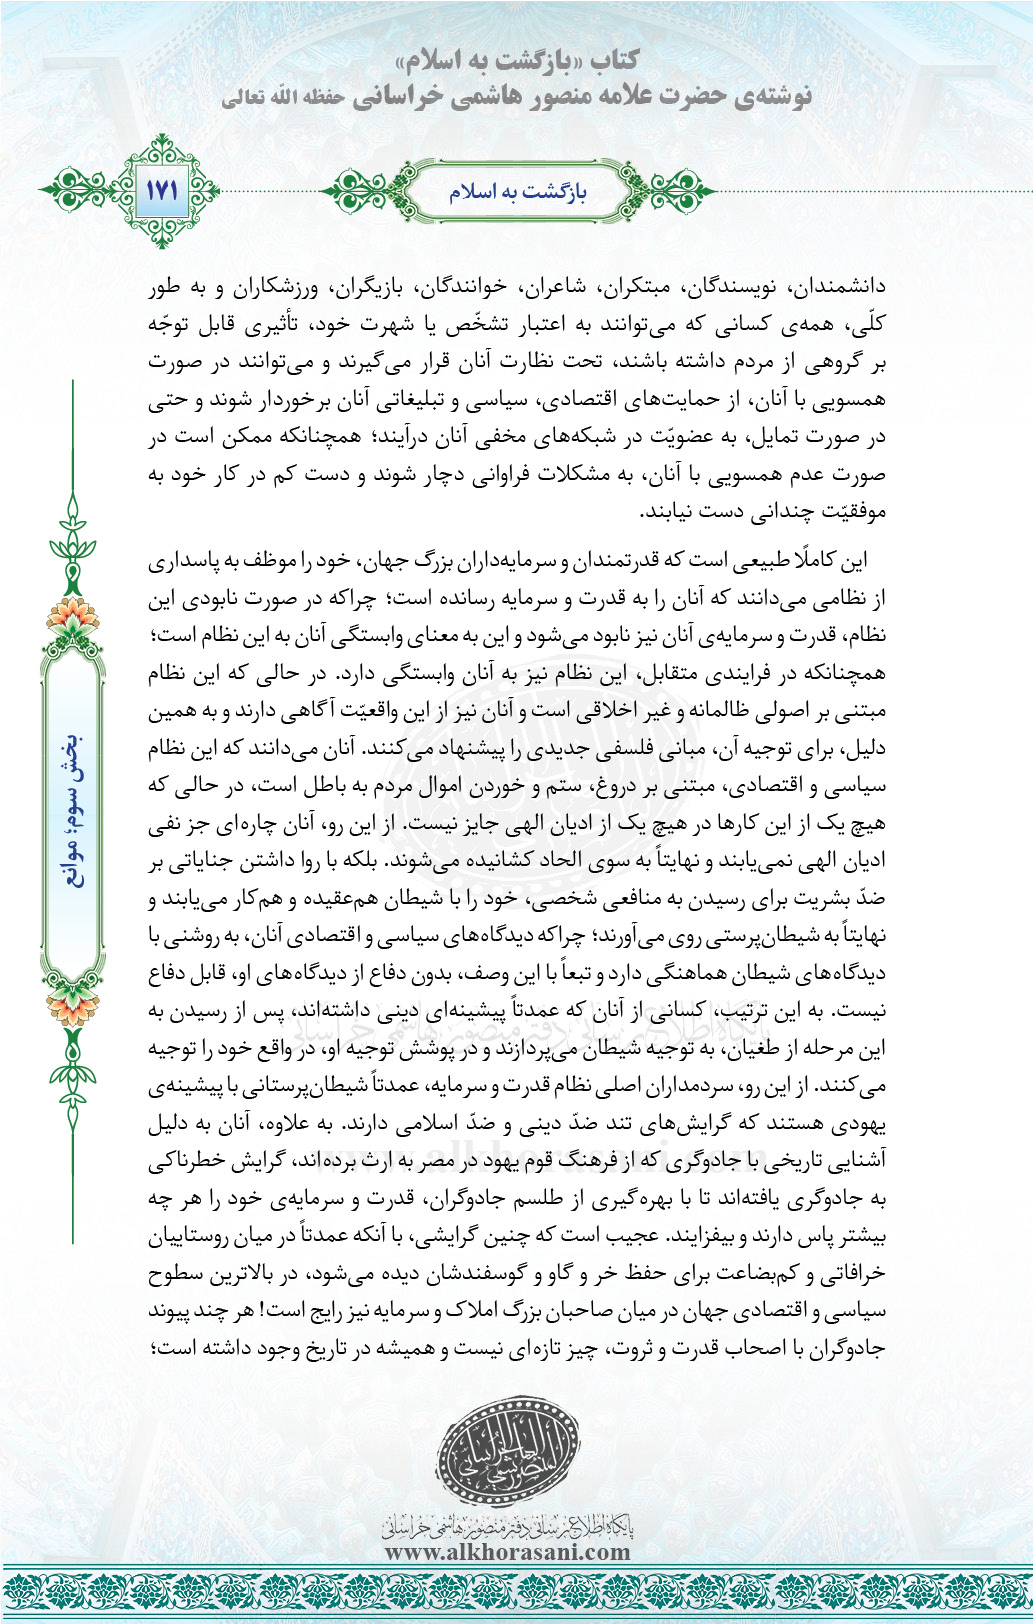 کتاب «بازگشت به اسلام»
نوشته‌ی حضرت علامه منصور هاشمی خراسانی حفظه الله تعالی
۱۷۱
بازگشت به اسلام
دانشمندان، نویسندگان، مبتکران، شاعران، خوانندگان، بازیگران، ورزشکاران و به طور
کلّی، همه‌ی کسانی که می‌توانند به اعتبار تشخّص یا شهرت خود، تأثیری قابل توجّه
بر گروهی از مردم داشته باشند، تحت نظارت آنان قرار می‌گیرند و می‌توانند در صورت
همسویی با آنان، از حمایت‌های اقتصادی، سیاسی و تبلیغاتی آنان برخوردار شوند و حتی
در صورت تمایل، به عضویّت در شبکه‌های مخفی آنان درآیند؛ همچنانکه ممکن است در
صورت عدم همسویی با آنان، به مشکلات فراوانی دچار شوند و دست کم در کار خود به
موفقیّت چندانی دست نیابند.
این کاملًا طبیعی است که قدرتمندان و سرمایه‌داران بزرگ جهان، خود را موظف به پاسداری
از نظامی می‌دانند که آنان را به قدرت و سرمایه رسانده است؛ چراکه در صورت نابودی این
نظام، قدرت و سرمایه‌ی آنان نیز نابود می‌شود و این به معنای وابستگی آنان به این نظام است؛
همچنانکه در فرایندی متقابل، این نظام نیز به آنان وابستگی دارد. در حالی که این نظام
مبتنی بر اصولی ظالمانه و غیر اخلاقی است و آنان نیز از این واقعیّت آگاهی دارند و به همین
دلیل، برای توجیه آن، مبانی فلسفی جدیدی را پیشنهاد می‌کنند. آنان می‌دانند که این نظام
سیاسی و اقتصادی، مبتنی بر دروغ، ستم و خوردن اموال مردم به باطل است، در حالی که
هیچ یک از این کارها در هیچ یک از ادیان الهی جایز نیست. از این رو، آنان چاره‌ای جز نفی
ادیان الهی نمی‌یابند و نهایتاً به سوی الحاد کشانیده می‌شوند. بلکه با روا داشتن جنایاتی بر
ضدّ بشریت برای رسیدن به منافعی شخصی، خود را با شیطان هم‌عقیده و هم‌کار می‌یابند و
نهایتاً به شیطان‌پرستی روی می‌آورند؛ چراکه دیدگاه‌های سیاسی و اقتصادی آنان، به روشنی با
دیدگاه‌های شیطان هماهنگی دارد و تبعاً با این وصف، بدون دفاع از دیدگاه‌های او، قابل دفاع
نیست. به این ترتیب، کسانی از آنان که عمدتاً پیشینه‌ای دینی داشته‌اند، پس از رسیدن به
این مرحله از طغیان، به توجیه شیطان می‌پردازند و در پوشش توجیه او، در واقع خود را توجیه
می‌کنند. از این رو، سردمداران اصلی نظام قدرت و سرمایه، عمدتاً شیطان‌پرستانی با پیشینه‌ی
یهودی هستند که گرایش‌های تند ضدّ دینی و ضدّ اسلامی دارند. به علاوه، آنان به دلیل
آشنایی تاریخی با جادوگری که از فرهنگ قوم یهود در مصر به ارث برده‌اند، گرایش خطرناکی
به جادوگری یافته‌اند تا با بهره‌گیری از طلسم جادوگران، قدرت و سرمایه‌ی خود را هر چه
بیشتر پاس دارند و بیفزایند. عجیب است که چنین گرایشی، با آنکه عمدتاً در میان روستاییان
خرافاتی و کم‌بضاعت برای حفظ خر و گاو و گوسفندشان دیده می‌شود، در بالاترین سطوح
سیاسی و اقتصادی جهان در میان صاحبان بزرگ املاک و سرمایه نیز رایج است! هر چند پیوند
جادوگران با اصحاب قدرت و ثروت، چیز تازه‌ای نیست و همیشه در تاریخ وجود داشته است؛
بخش سوم؛ موانع
پایگاه اطلاع رسانی دفتر منصور هاشمی خراسانی
www.alkhorasani.com
المنصور الهاشمی الخراسانی
پایگاه اطلاع رسانی دفتر منصور هاشمی خراسانی
www.alkhorasani.com